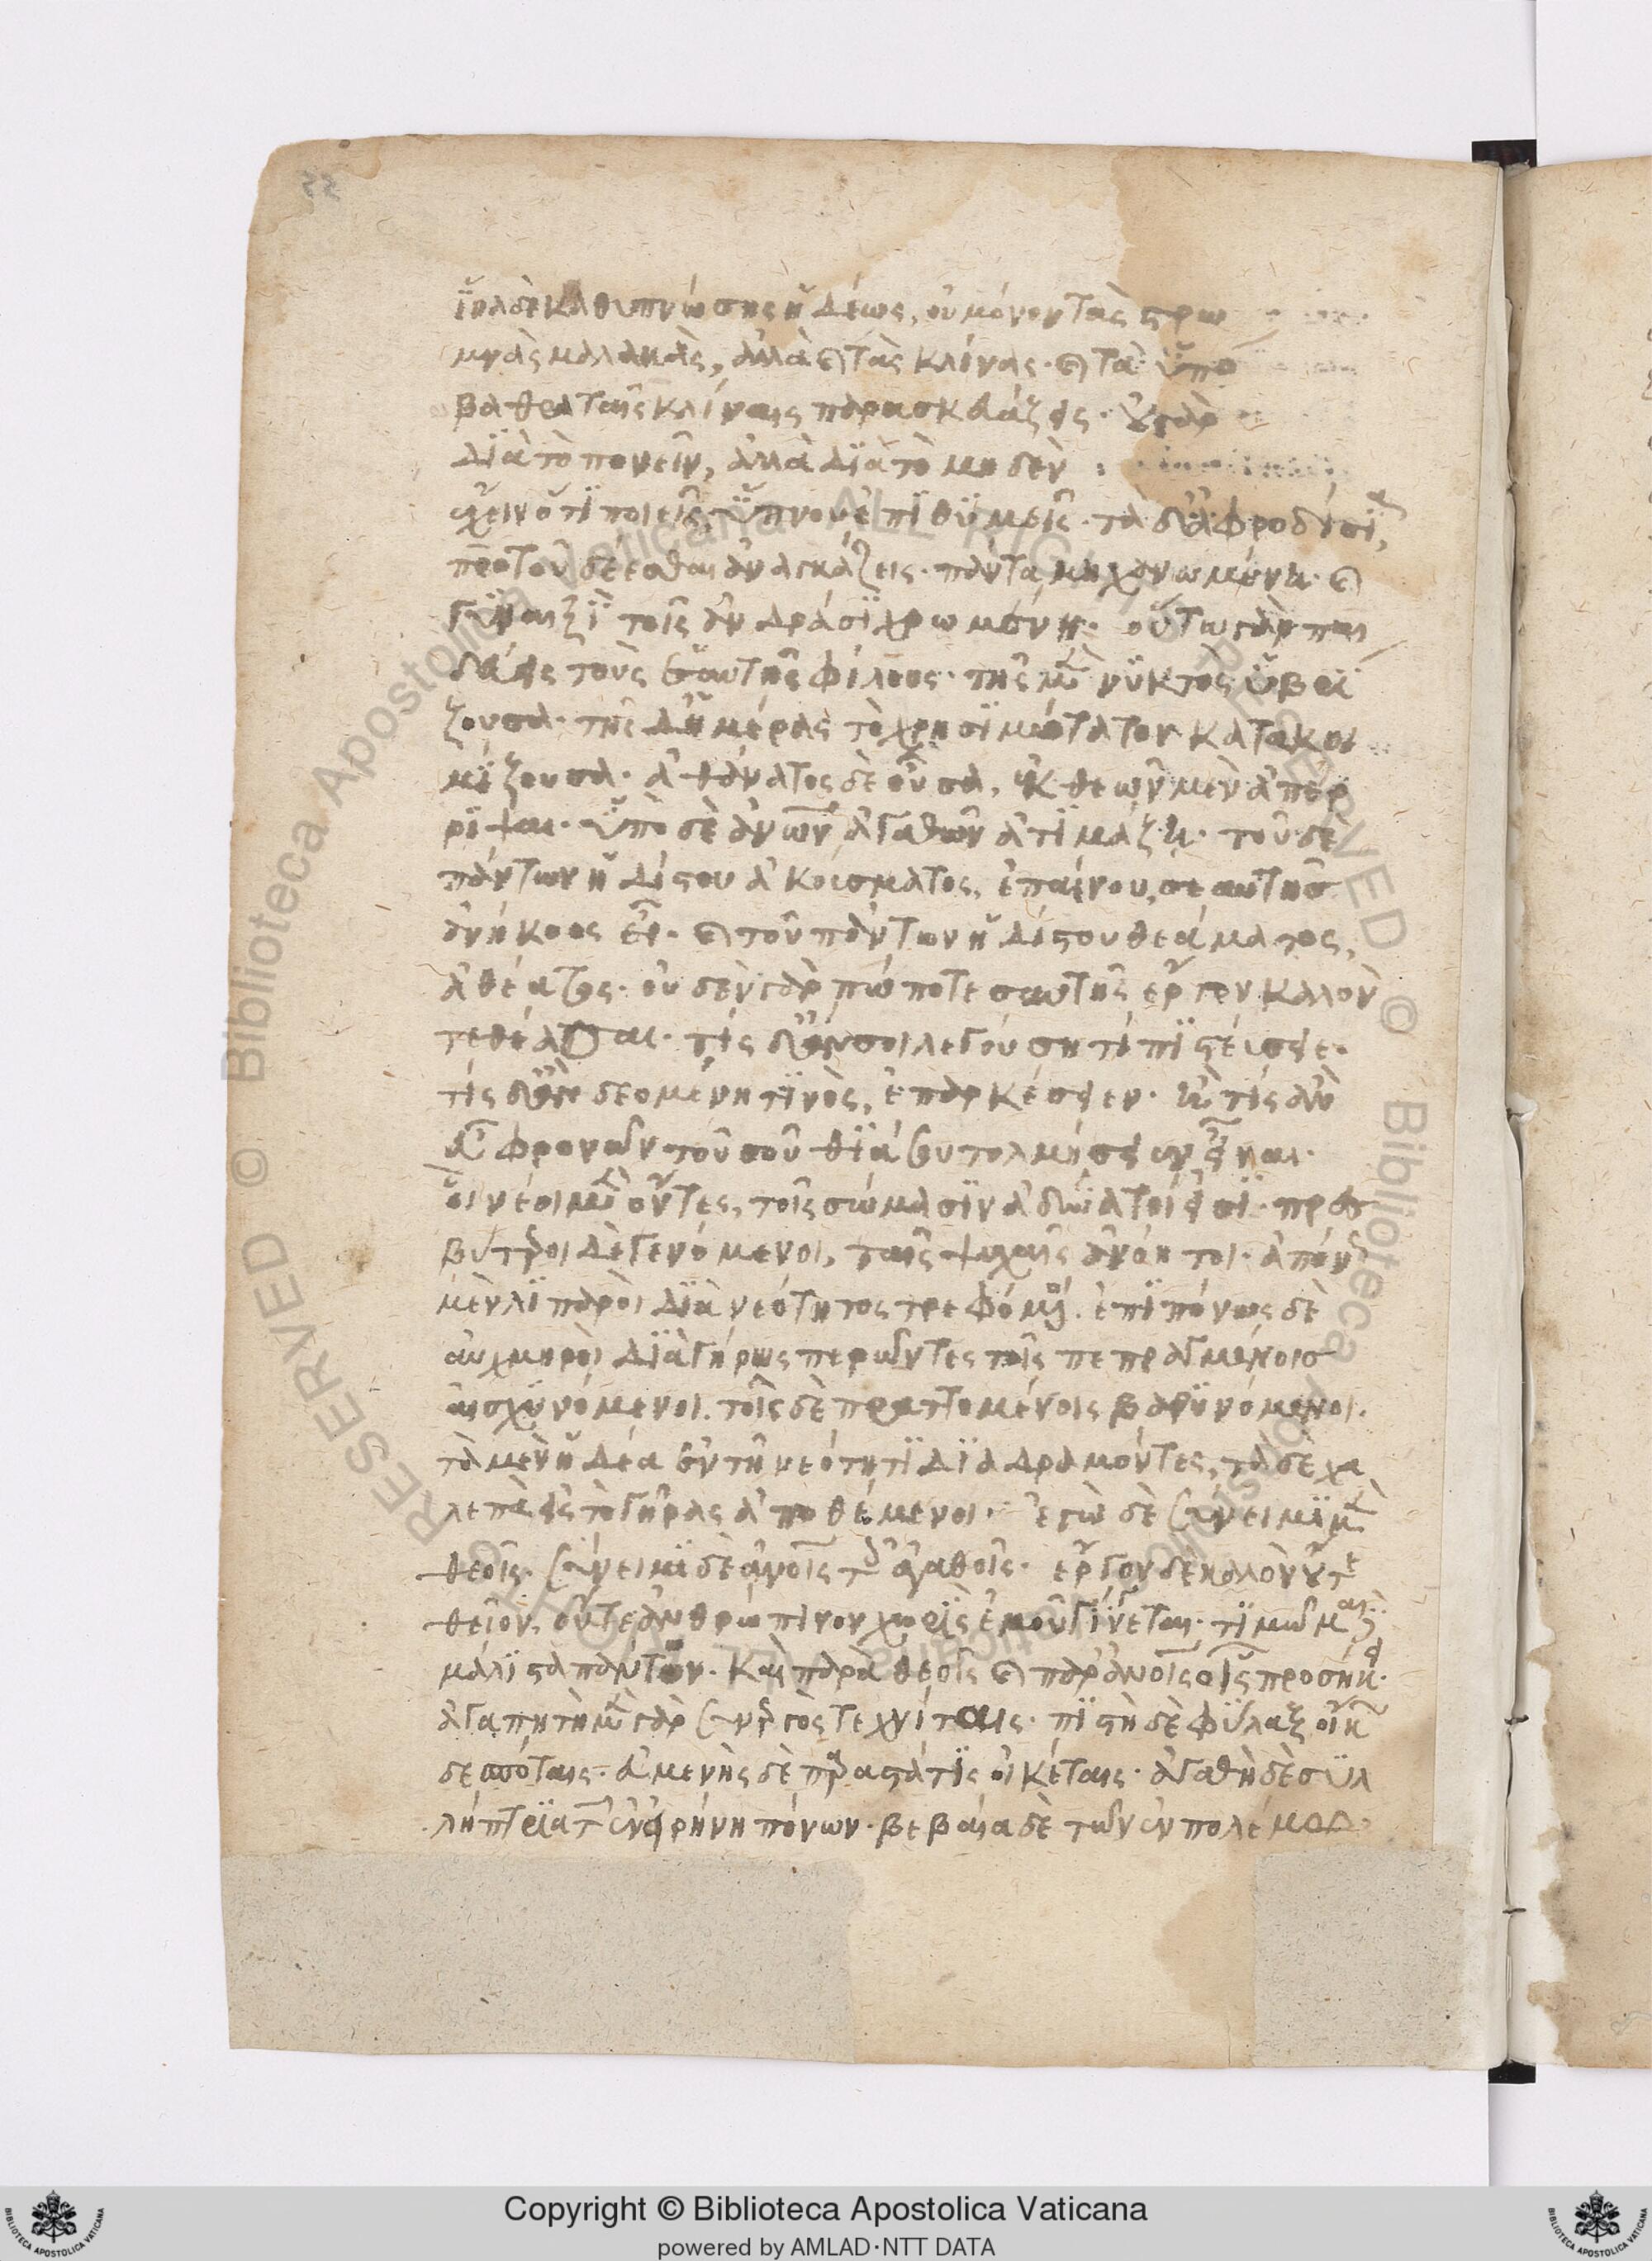 ἵνα δὲ καθυπνώσης ἡδέως, οὐ μόνον τὰς στρω
μνὰς μαλακὰς, ἀλλὰ καὶ τὰς κλίνας· καὶ τὰ ὑπό
βαθρα ταῖς κλίναις παρασκευάζεις· οὐ γὰρ
διὰ τὸ πονεῖν, ἀλλὰ διὰ τὸ μηδὲν
ἔχειν ὅτι ποιεῖς, ὕπνου ἐπιθυμεῖς· τὰ δ' ἀφροδίσια,
πρὸ τοῦ δέεσθαι ἀναγκάζεις· πάντα μηχανωμένη· καὶ
γυναιξὶ τοῖς ἀνδράσι χρωμένη· οὕτω γὰρ παι
δεύεις τοὺς ἑαυτῆς φίλους· τῆς μὲν νυκτὸς ὑβρί
ζουσα· τῆς δ' ἡμέρας τὸ χρησιμώτατον κατακοι
μίζουσα· ἀθάνατος δὲ οὖσα, ἐκ θεῶν μὲν ἀπέρ
ριψαι· ὑπὸ δὲ ἀνῶν ἀγαθῶν ἀτιμάζη· τοῦ δὲ
πάντων ἡδίστου ἀκούσματος, ἐπαίνου, σεαυτῆς
ἀνήκοος εἶ· καὶ τοῦ πάντων ἡδίστου θεάματος,
ἀθέατος· οὐδὲν γὰρ πώποτε σεαυτῆς ἔργον καλὸν
τεθέασαι· τίς δ' ἄν σοι λεγούση τι πιστεύσειε·
τίς δ' ἂν δεομένη τινὸς, ἐπαρκέσειεν· ἢ τίς ἂν
εὖ φρονῶν τοῦ σοῦ θιάσου τολμήσειεν εἶναι·
οἳ νέοι μὲν ὄντες, τοῖς σώμασιν ἀδύνατοί εἰσι· πρεσ
βύτεροι δὲ γενόμενοι, ταῖς ψυχαῖς ἀνόητοι· ἀπόνως
μὲν λιπαροὶ διὰ νεότητος τρεφόμενοι· ἐπιπόνως δὲ
αὐχμηροὶ διὰ γήρως περῶντες τοῖς πεπραγμένοις
αἰσχυνόμενοι. τοῖς δὲ πραττομένοις βαρυνόμενοι.
τὰ μὲν ἡδέα ἐν τῆ νεότητι διαδραμόντες, τὰ δὲ χα
λεπὰ εἰς τὸ γῆρας ἀποθέμενοι· ἐγὼ δὲ σύνειμι μὲν
θεοῖς· σύνειμι δὲ ἀνοῖς τοῖς ἀγαθοῖς· ἔργον δὲ καλὸν οὔτε
θεῖον, οὔτε ἀνθρώπινον χωρὶς ἐμοῦ γίνεται· τιμῶμαι δὲ
μάλιστα πάντων· καὶ παρὰ θεοῖς καὶ παρ' ἀνοῖς οἷς προσήκει·
ἀγαπητὴ μὲν γὰρ συνεργὸς τεχνίταις· πιστὴ δὲ φύλαξ οἴκων
δεσπόταις· εὐμενὴς δὲ παραστάτις οἰκέταις· ἀγαθὴ δὲ συλ
λήπτρια τῶν ἐν εἰρήνη πόνων· βεβαία δὲ τῶν ἐν πολέμω
Copyright © Biblioteca Apostolica Vaticana
powered by AMLAD·NTT DATA